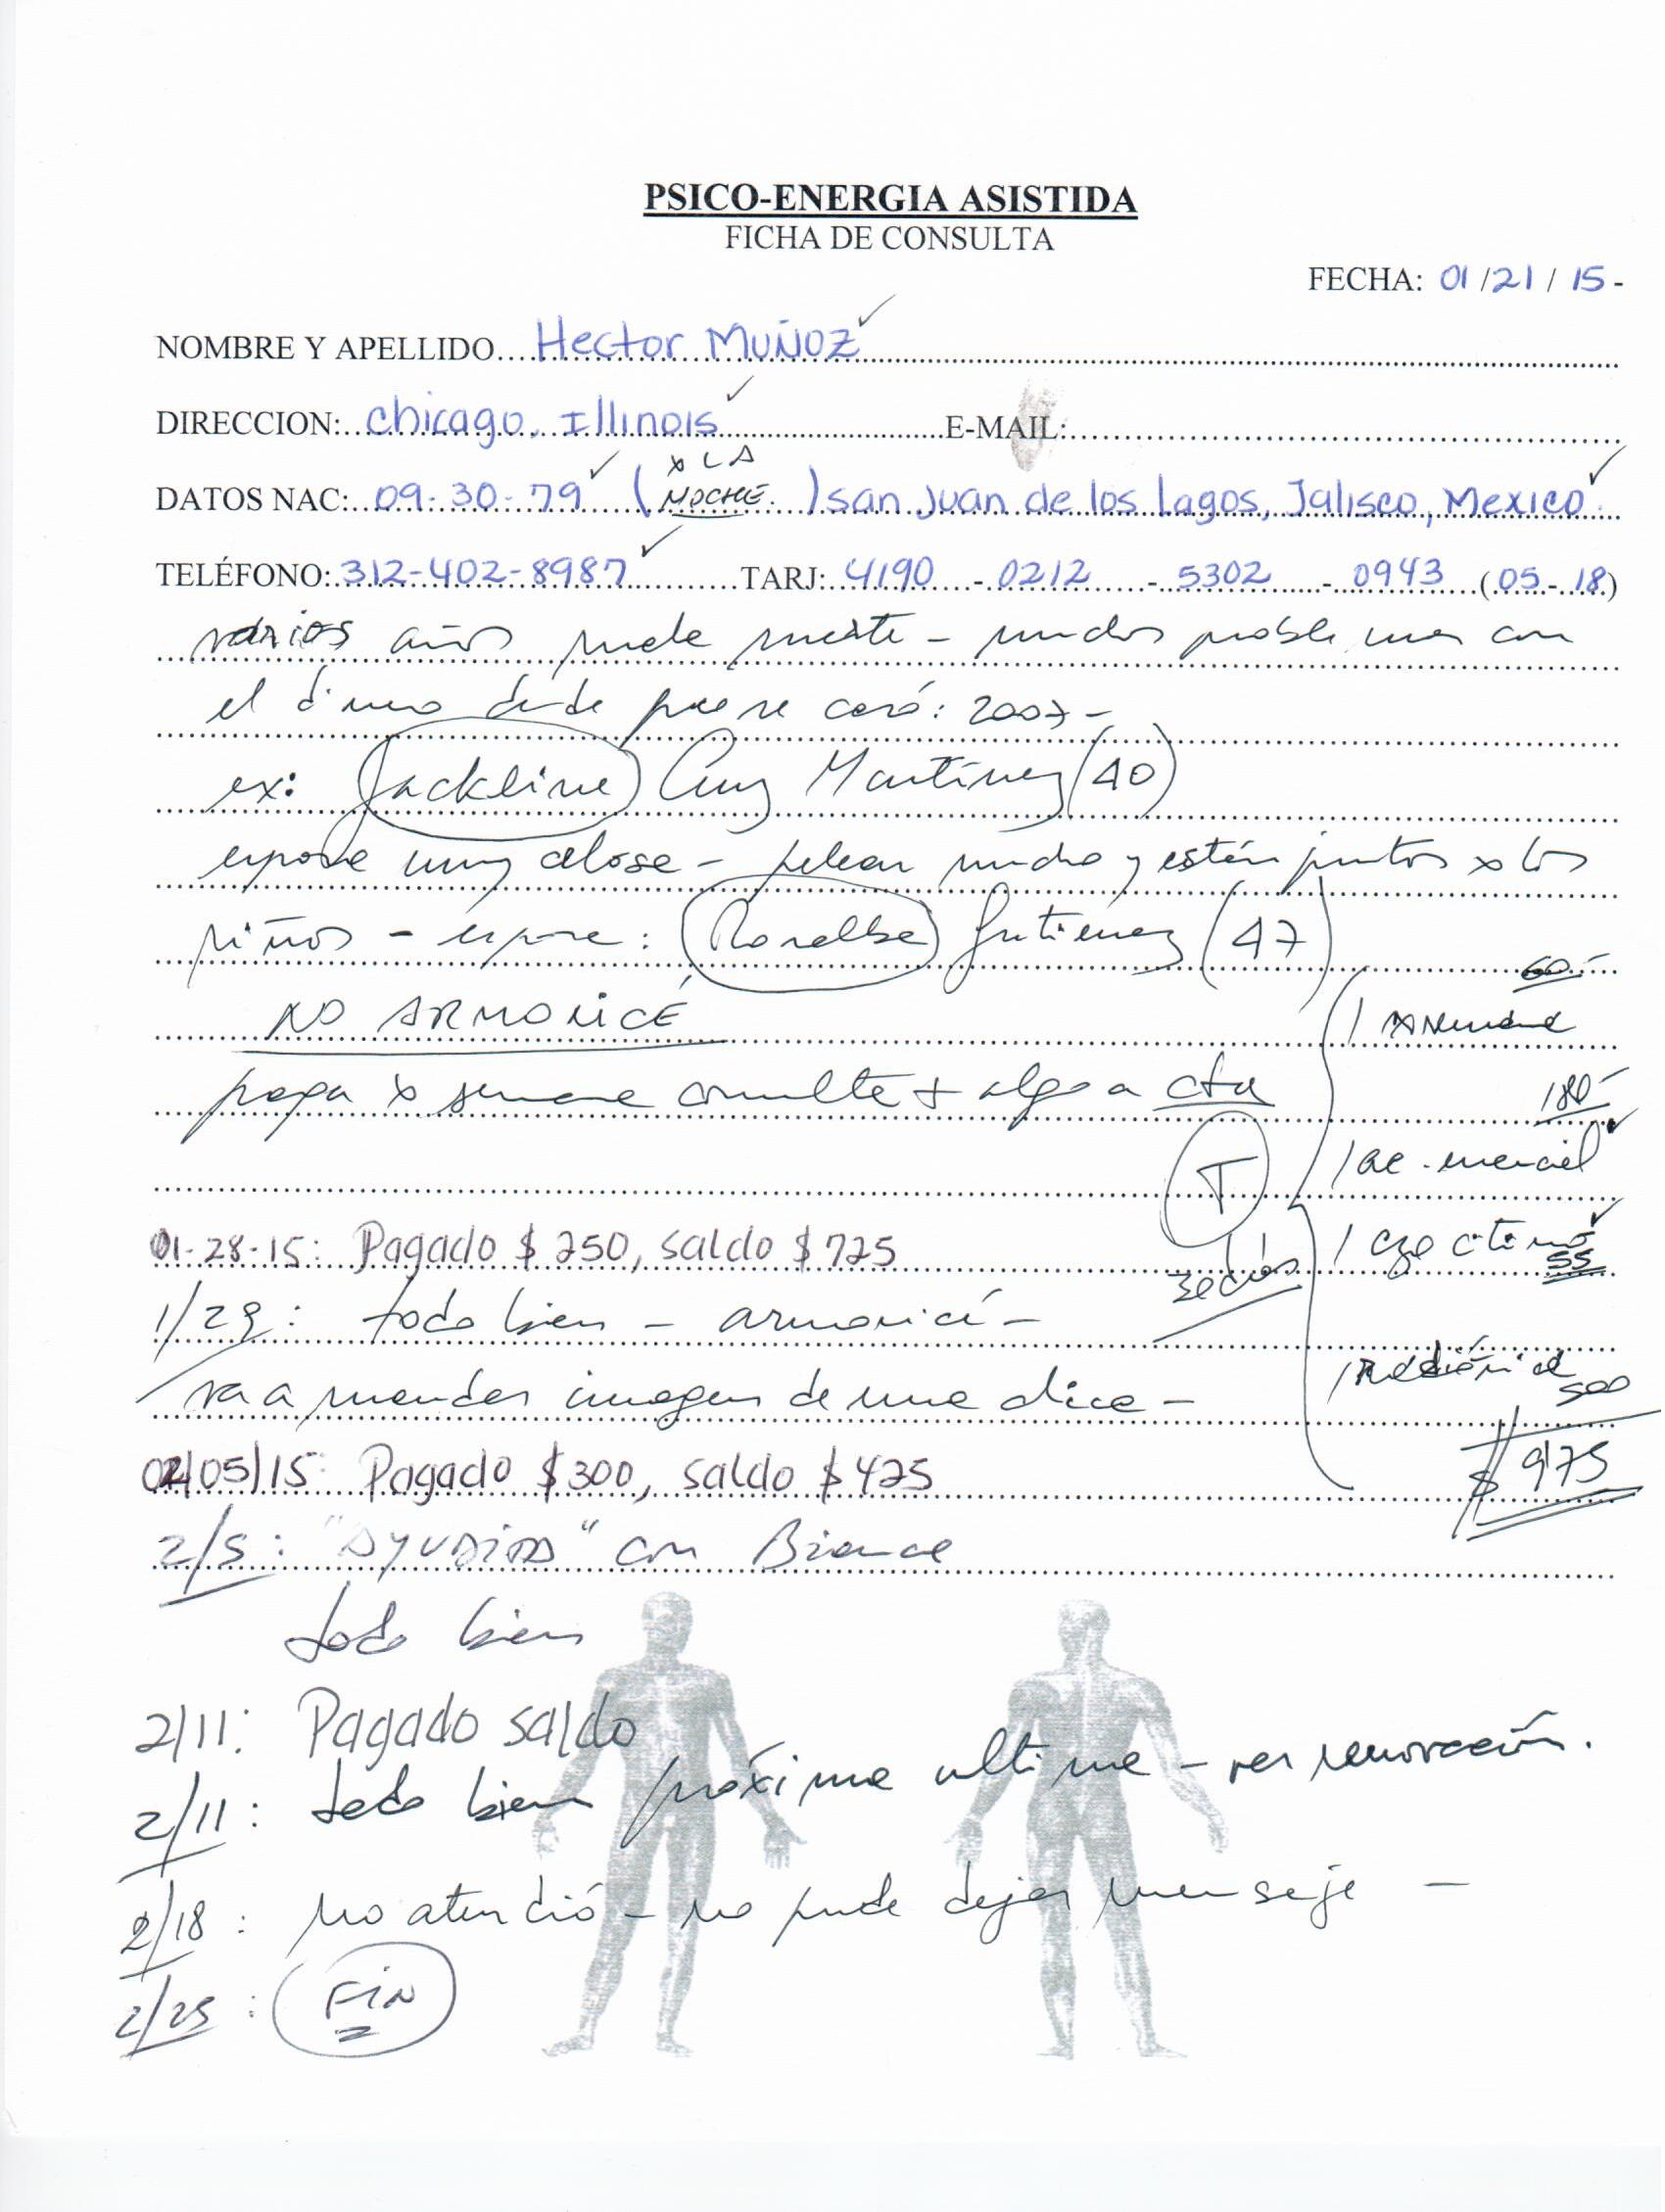 PSICO-ENERGIA ASISTIDA
FICHA DE CONSULTA
FECHA: 01/21/15-
NOMBRE Y APELLIDO Hector Muñoz
DIRECCION: Chicago, Illinois E-MAIL:
DATOS NAC: 09-30-79 (x LA NOCHE) San Juan de los Lagos, Jalisco, Mexico
TELÉFONO: 312-402-8987 TARJ: 4190 - 0212 - 5302 - 0943 (05-18)
varios años mala suerte - muchos problemas con
el dinero desde que se casó: 2007-
ex: Jackline Cruz Martínez (40)
esposa muy celosa - pelean mucho y están juntos x los
niños - esposa: Rosalba Gutierrez (47)
60-
NO ARMONICÉ
x semana
paga x semana consulta + algo a cta
180-
T
01-28-15: Pagado $250, saldo $725
55
1/29: todo bien - armonicé -
va a mandar imagen de una dice -
500
$975
02/05/15: Pagado $300, saldo $425
2/5: "AYUDITA" con Bianca
todo bien
2/11: Pagado saldo
2/11: todo bien próxima ultima - ver renovación.
2/18: No atendió - no pude dejar mensaje -
2/25: FIN